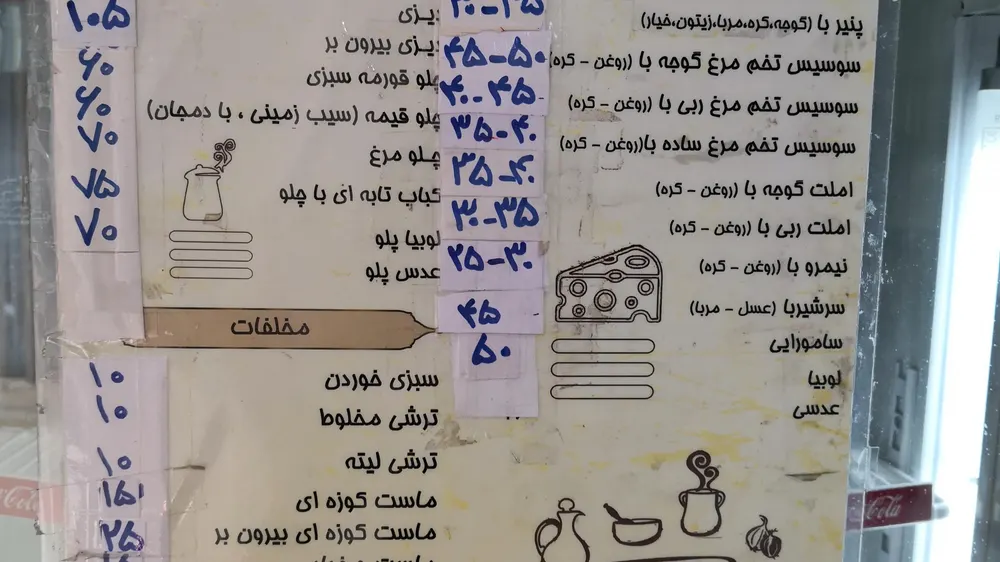 پنیر با (گوجه،کره،مربا،زیتون،خیار)
سوسیس تخم مرغ گوجه با (روغن - کره) ۴۵-۵۰
سوسیس تخم مرغ ربی با (روغن - کره) ۴۰-۴۵
سوسیس تخم مرغ ساده با(روغن - کره) ۳۵-۴۰
املت گوجه با (روغن - کره) ۳۵-۴۰
املت ربی با (روغن - کره) ۳۰-۳۵
نیمرو با (روغن - کره) ۲۵-۳۰
سرشیربا (عسل - مربا) ۴۵
سامورایی ۵۰
لوبیا
عدسی
دیزی ۱۰۵
دیزی بیرون بر
چلو قورمه سبزی ۶۰
چلو قیمه (سیب زمینی ، با دمجان) ۶۰
چلو مرغ ۷۰
کباب تابه ای با چلو ۷۵
لوبیا پلو ۷۰
عدس پلو
مخلفات
سبزی خوردن ۱۰
ترشی مخلوط ۱۰
ترشی لیته ۱۰
ماست کوزه ای ۱۵
ماست کوزه ای بیرون بر ۲۵
Cola
Cola